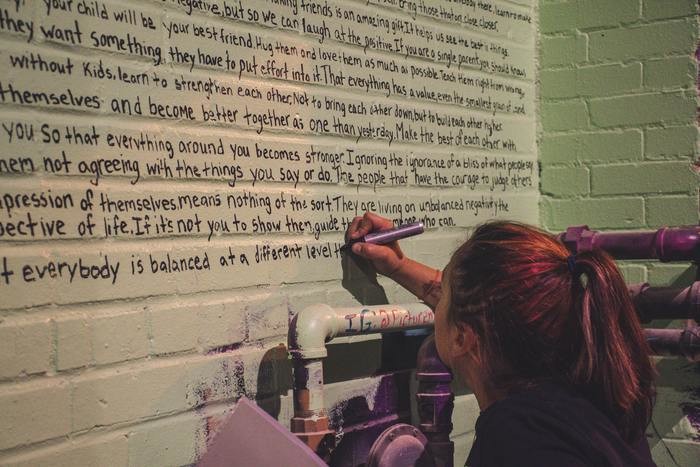 anybody there, learn to make
negative, but so we can laugh at the positive. If you are a single parent, you should know
your child will be your best friend. Hug them and love them as much as possible. Teach them right from wrong,
they want something, they have to put effort into it. That everything has a value, even the smallest grain of sand
without Kids, learn to strengthen each other, Not to bring each other down, but to build each other higher
themselves and become better together as one than yesterday. Make the best of each other with
you so that everything around you becomes stronger. Ignoring the ignorance of a bliss of what people say
them not agreeing with the things you say or do. The people that have the courage to judge others
impression of themselves, means nothing of the sort. They are living on unbalanced negativity the
pective of life. If it's not you to show them, guide th someone who can.
t everybody is balanced at a different level t
IG: @Picture